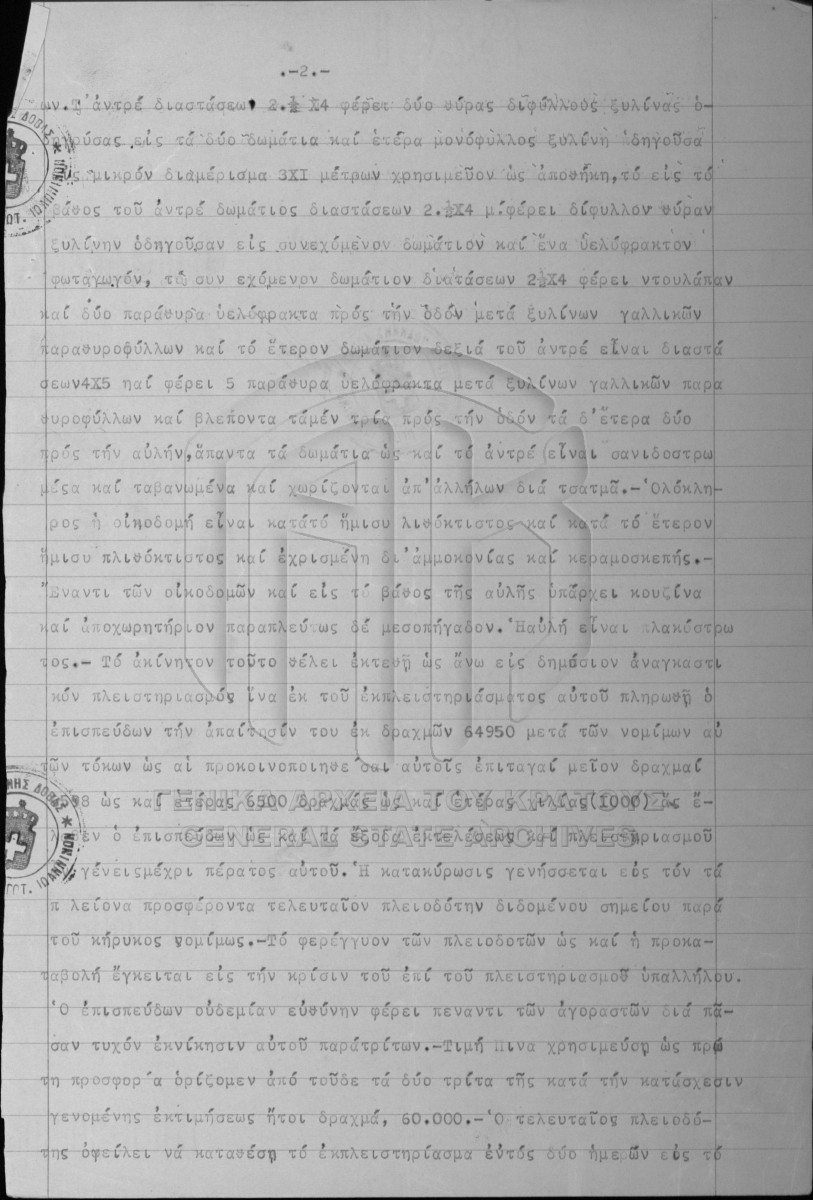 .-2.-
ων.Τ'ἀντρέ διαστάσεων 2.½ Χ4 φέρει δύο θύρας διφύλλους ξυλίνας ὁ-
δηγούσας εἰς τά δύο δωμάτια καί ἑτέρα μονόφυλλος ξυλίνη ὁδηγοῦσα
μικρόν διαμέρισμα 3ΧΙ μέτρων χρησιμεῦον ὡς ἀποθήκη,τό εἰς τό
βάθος τοῦ ἀντρέ δωμάτιος διαστάσεων 2.½Χ4 μ.φέρει δίφυλλον θύραν
ξυλίνην ὁδηγοῦσαν εἰς συνεχόμενον δωμάτιον καί ἕνα ὑελόφρακτον
φωταγωγόν, τό συν εχόμενον δωμάτιον διατάσεων 2½Χ4 φέρει ντουλάπαν
καί δύο παράθυρα ὑελόφρακτα πρός τήν ὁδόν μετά ξυλίνων γαλλικῶν
παραθυροφύλλων καί τό ἕτερον δωμάτιον δεξιά τοῦ ἀντρέ εἶναι διαστά
σεων4Χ5 ηαί φέρει 5 παράθυρα ὑελόφρακτα μετά ξυλίνων γαλλικῶν παρα
θυροφύλλων καί βλέποντα τάμέν τρία πρός τήν ὁδόν τά δ'ἕτερα δύο
πρός τήν αὐλήν,ἅπαντα τά δωμάτια ὡς καί τό ἀντρέ εἶναι σανιδοστρω
μέσα καί ταβανωμένα καί χωρίζονται ἀπ'ἀλλήλων διά τσατμᾶ.-Ὁλόκλη-
ρος ἡ οἰκοδομή εἶναι κατάτό ἥμισυ λιθόκτιστος καί κατά τό ἕτερον
ἥμισυ πλιθόκτιστος καί ἐχρισμένη δι'ἀμμοκονίας καί κεραμοσκεπής.-
Ἔναντι τῶν οἰκοδομῶν καί εἰς τό βάθος τῆς αὐλῆς ὑπάρχει κουζίνα
καί ἀποχωρητήριον παραπλεύτως δέ μεσοπήγαδον. Ἡαὐλή εἶναι πλακύστρω
τος.- Τό ἀκίνητον τοῦτο θέλει ἐκτεθῇ ὡς ἄνω εἰς δημόσιον ἀναγκαστι
κόν πλειστηριασμός ἵνα ἐκ τοῦ ἐκπλειστηριάσματος αὐτοῦ πληρωθῇ ὁ
ἐπισπεύδων τήν ἀπαίτησίν του ἐκ δραχμῶν 64950 μετά τῶν νομίμων αὐ
τῶν τόκων ὡς αἱ προκοινοποιηθεῖσαι αὐτοῖς ἐπιταγαί μεῖον δραχμαί
ὡς καί ἑτέρας 6500 δραχμάς ὡς καί ἑτέρας χιλίας(Ι000) ἅς ἔ-
ὁ ἐπισπεύδων ὡς καί τά ἔξοδα ἐκτελέσεως καί πλειστηριασμοῦ
γένειςμέχρι πέρατος αὐτοῦ. Ἡ κατακύρωσις γενήσσεται εἰς τόν τά
π λείονα προσφέροντα τελευταῖον πλειοδότην διδομένου σημείου παρά
τοῦ κήρυκος νομίμως.-Τό φερέγγυον τῶν πλειοδοτῶν ὡς καί ἡ προκα-
ταβολή ἔγκειται εἰς τήν κρίσιν τοῦ ἐπί τοῦ πλειστηριασμοῦ ὑπαλλήλου.
Ὁ ἐπισπεύδων οὐδεμίαν εὐθύνην φέρει πεναντι τῶν ἀγοραστῶν διά πᾶ-
σαν τυχόν ἐκνίκησιν αὐτοῦ παράτρίτων.-Τιμή Πινα χρησιμεύσῃ ὡς πρώ
τη προσφορ'α ὁρίζομεν ἀπό τοῦδε τά δύο τρίτα τῆς κατά τήν κατάσχεσιν
γενομένης ἐκτιμήσεως ἤτοι δραχμά, 60.000.-Ὁ τελευταῖος πλειοδό-
της ὀφείλει νά καταθέσῃ τό ἐκπλειστηρίασμα ἐντός δύο ἡμερῶν εἰς τό
ΓΕΝΙΚΑ ΑΡΧΕΙΑ ΤΟΥ ΚΡΑΤΟΥΣ
GENERAL STATE ARCHIVES